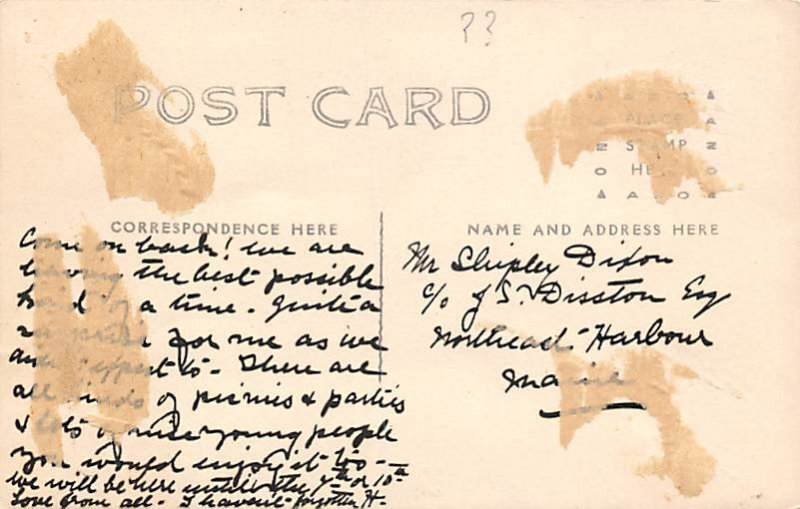 ??
POST CARD
PLACE
STAMP
HERE
CORRESPONDENCE HERE
NAME AND ADDRESS HERE
Come on back! We are
having the best possible
kind of a time. Quite a
surprise for me as we
didn't expect to - There are
all kinds of picnics & parties
& lots of nice young people
you would enjoy it too -
we will be here until the 9th or 10th
Love from all - I haven't forgotten H-
Mr Shipley Dixon
c/o J S. Disston Esq
Northeast Harbour
Maine